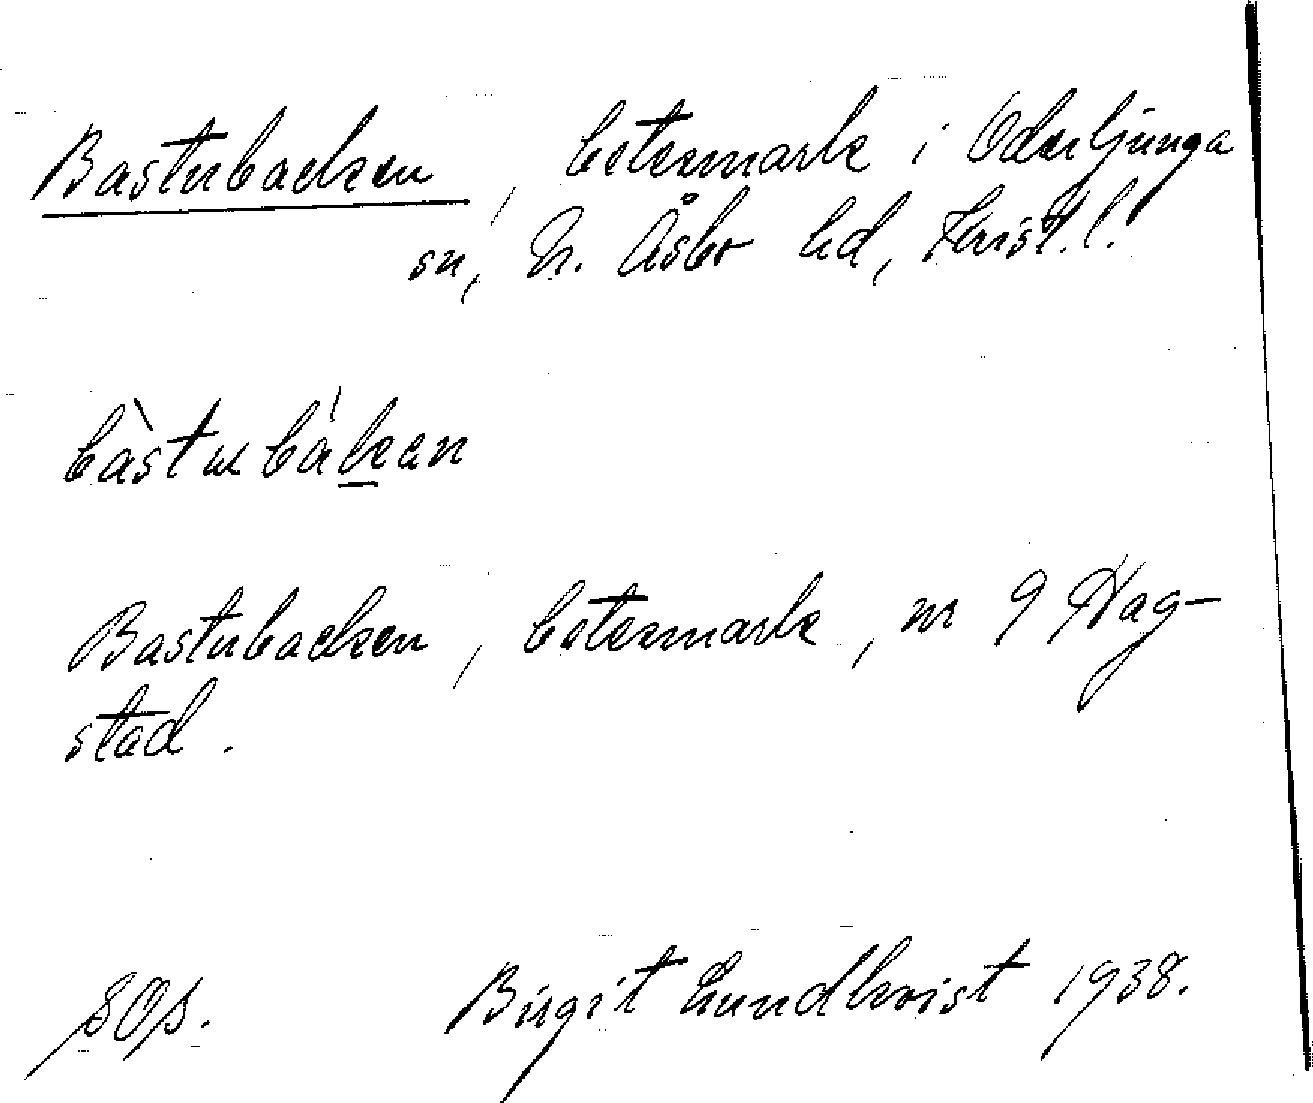 Bastubacken, betesmark i Oderljunga
sn, N. Åsbo hd, Krist. l.
bàstubákan
Bastubacken, betesmark, nr 9 Hag-
stad.
SOS. Birgit Lundkvist 1938.